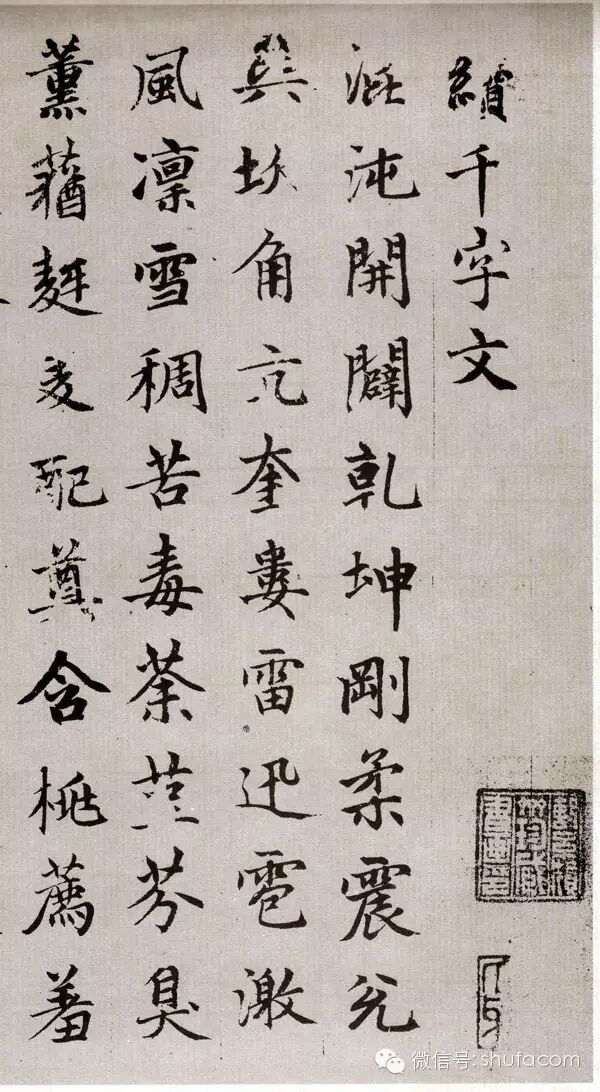 續千字文
混沌開闢乾坤剛柔震兌
巽坎角亢奎婁雷迅雹激
風凛雪稠苦毒荼芬臭
薰蕕麰麦配尊含桃薦羞
微信号: shufacom